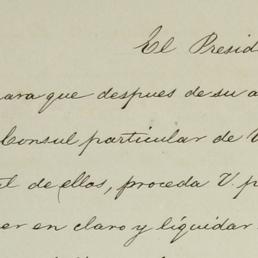 El Presid
para que despues de su a
Consul particular de
de ellos, proceda V. p
er en claro y liquidar